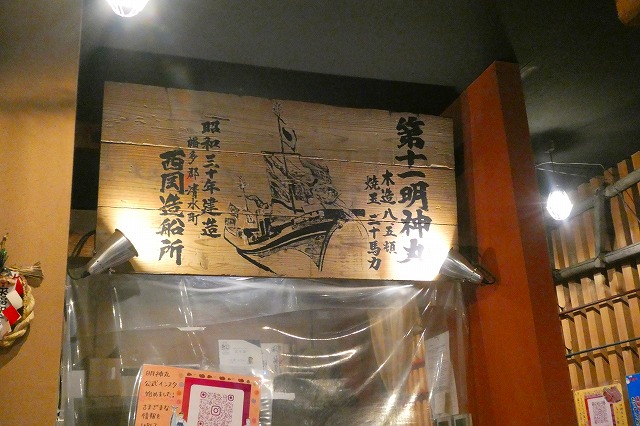 第十一明神丸
木造 八五頓
焼玉 二十馬力
昭和三十年建造
幡多郡清水町
西岡造船所
明神丸
公式インスタ
始めました!
さまざまな
情報を